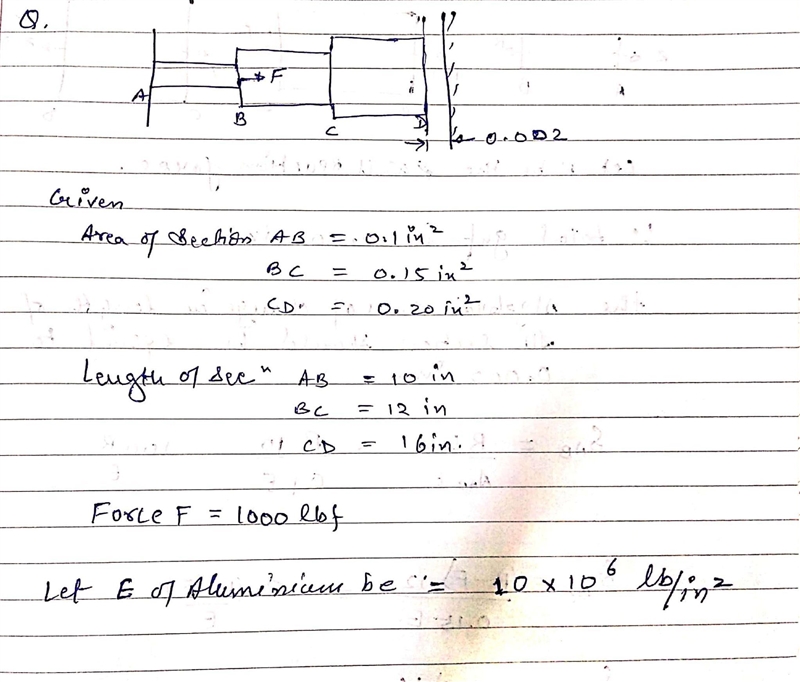 Q.
F
A
B
C
D
0.002
Given
Area of Section AB = 0.1 in²
BC = 0.15 in²
CD = 0.20 in²
Length of Secⁿ AB = 10 in
BC = 12 in
CD = 16 in.
Force F = 1000 lbf
Let E of Aluminium be = 10 × 10⁶ lb/in²